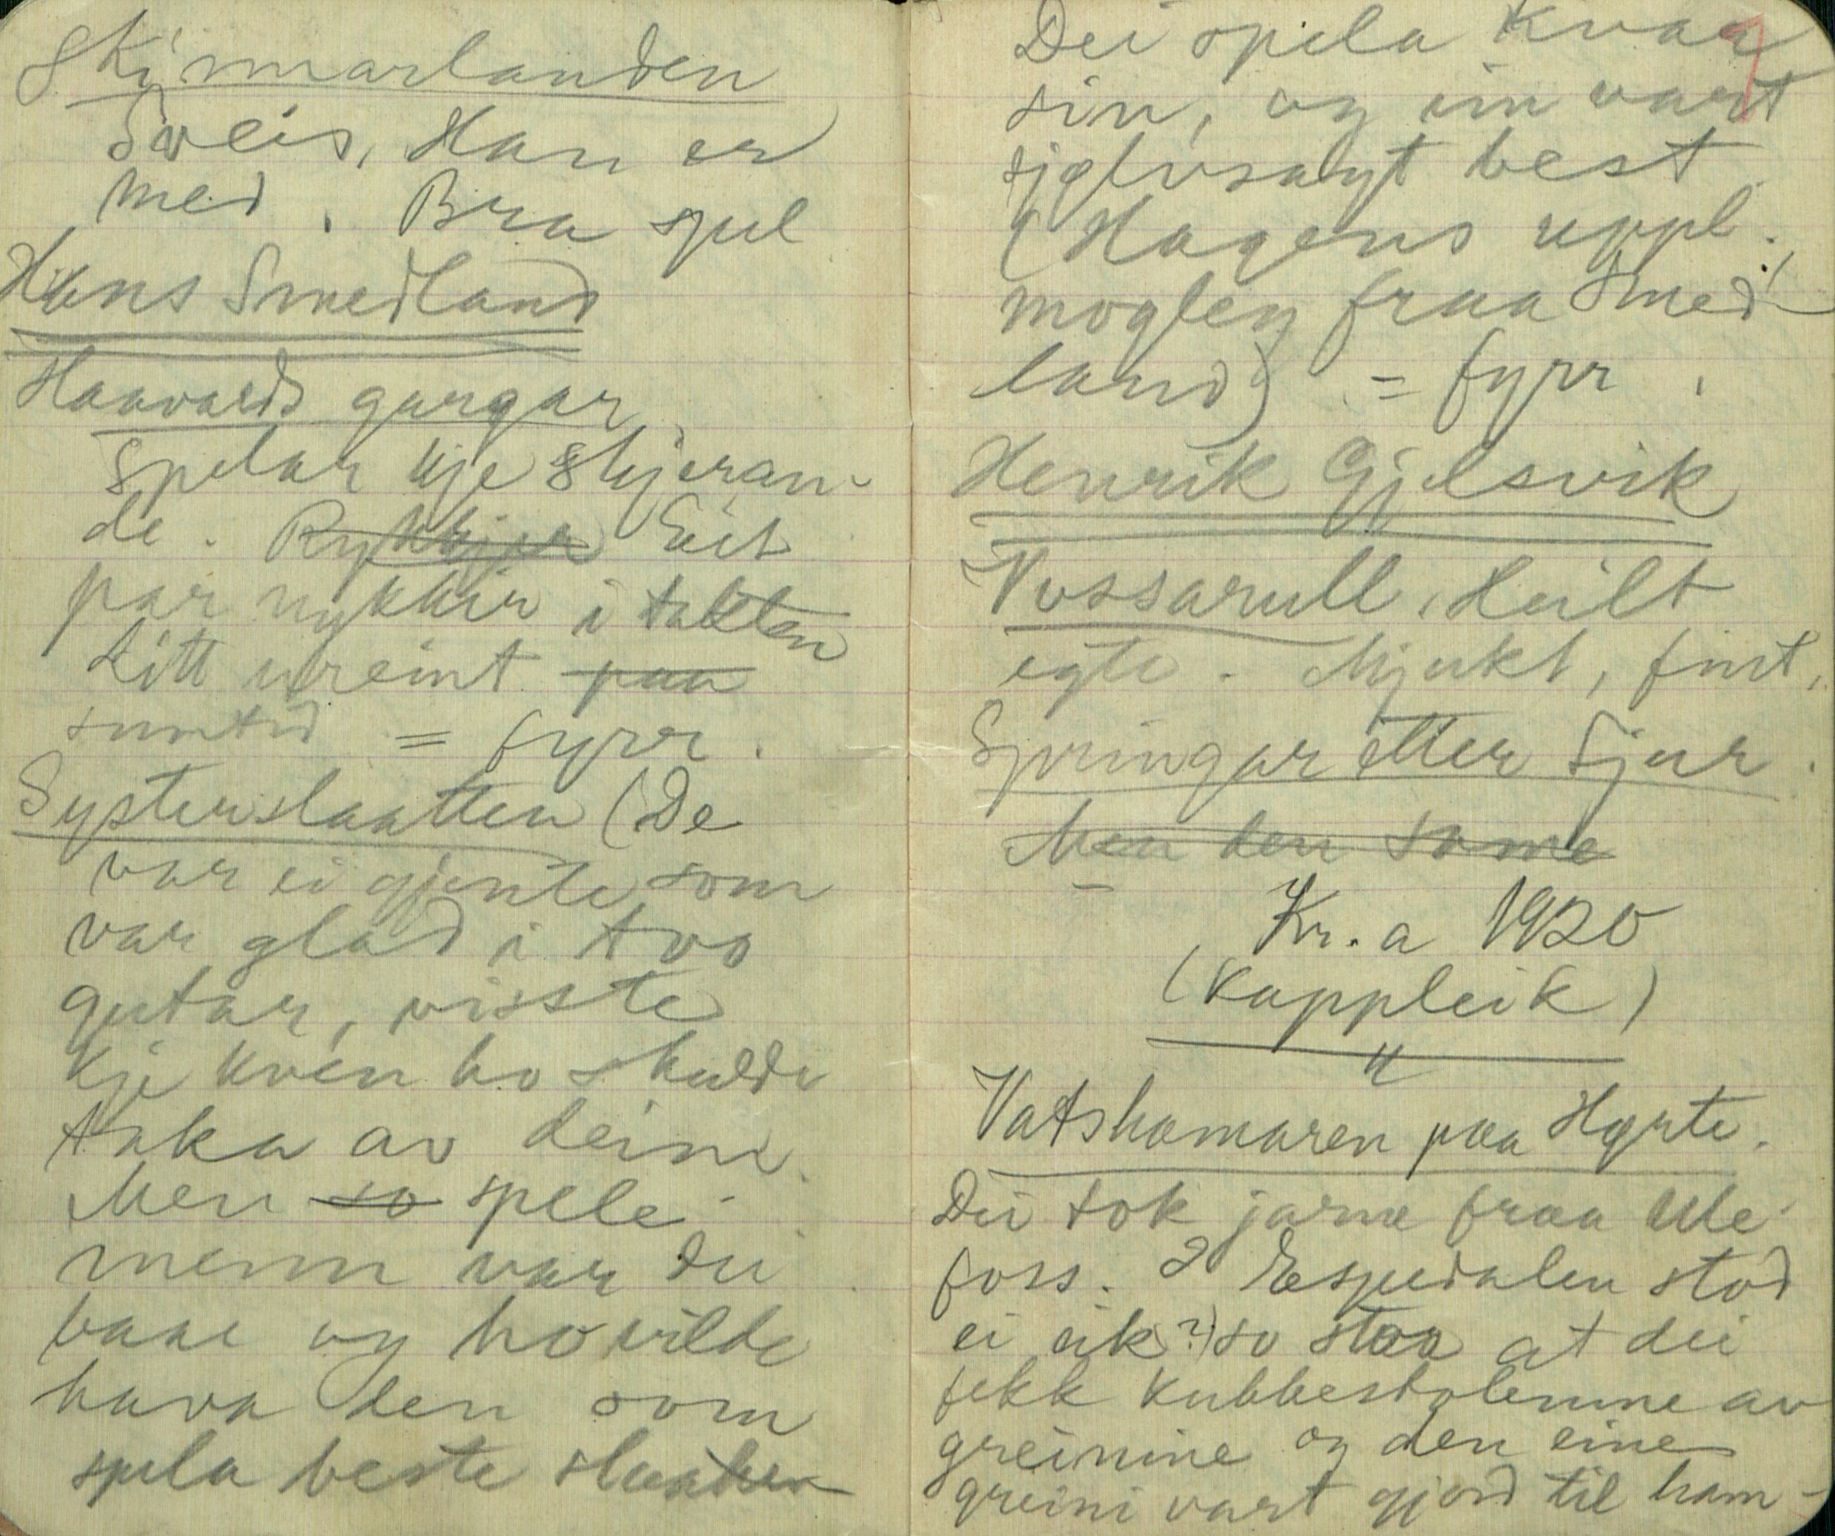 Skinnarlanden
Sveis, Han er
med. Bra spel
Hans Smedland
Haavards gangar
Spelar kje skjeran-
de. Rykkjer Eit
par rykkir i takten
Litt ureint paa
sumtid = fyrr.
Systerslaatten (De
var ei gjente som
var glad i tvo
gutar, visste
kje kven ho skulde
taka av deim.
Men so spele-
menn var dei
baae og ho vilde
hava den som
spela beste slaatten
Dei spela kvaa 7
sin, og ein vart
sjølvsagt best
(Hagens uppl.
mogleg fraa Smed-
land) = fyrr.
Henrik Gjelsvik
Vossarull, Heilt
egte. Mjukt, fint,
Springar etter Sjur.
Men den same
Kr.a 1920
(Kappleik)
Vatshamaren paa Hyrte.
Dei tok jarne fraa Ule-
foss. I Espedalen stod
ei eik?) so stor at dei
fekk kubbestolenne av
greinine og den eine
greini vart gjord til ham-